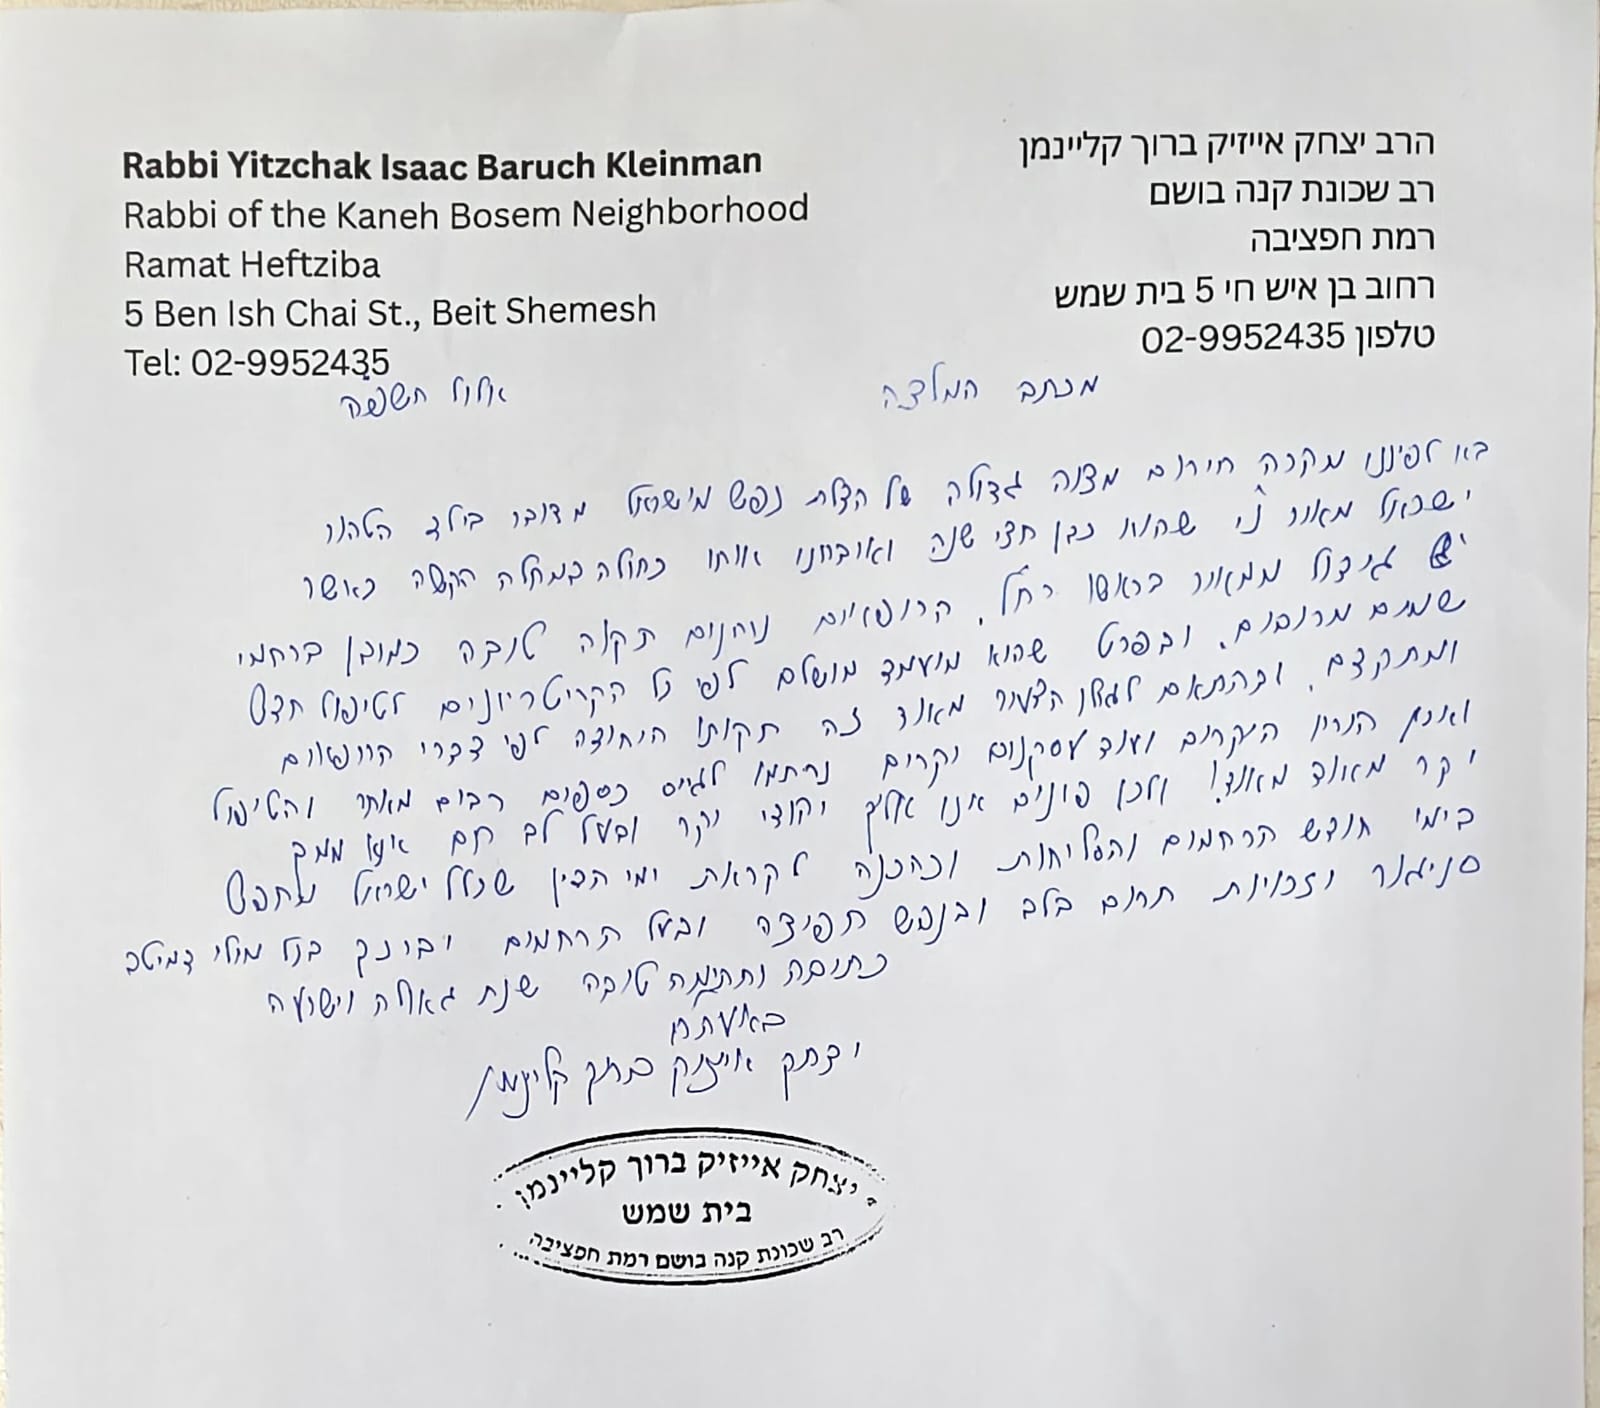 Rabbi Yitzchak Isaac Baruch Kleinman
Rabbi of the Kaneh Bosem Neighborhood
Ramat Heftziba
5 Ben Ish Chai St., Beit Shemesh
Tel: 02-9952435
הרב יצחק אייזיק ברוך קליינמן
רב שכונת קנה בושם
רמת חפציבה
רחוב בן איש חי 5 בית שמש
טלפון 02-9952435
אלול תשפ"ה
מכתב המלצה
בא לפנינו מקרה חירום מצוה גדולה של הצלת נפש מישראל מדובר בילד הטהור
ישראל מאור ני' שהוא כבן חצי שנה ואובחנו אותו כחולה במחלה הקשה כאשר
יש גידול ממאיר בראשו רח"ל. הרופאים נותנים תקוה טובה כמובן ברחמי
שמים מרובים. ובפרט שהוא מועמד מושלם לפי כל הקריטריונים לטיפול חדש
ומתקדם. ובהתאם לגילו הצעיר מאוד זה תקותו היחודה לפי דברי הרופאים
הוריו היקרים ועוד עסקנים יקרים נרתמו לגייס כספים רבים מאתר והטיפול
יקר מאוד מאוד! ולכן פונים אנו אליך יהודי יקר ובעל לב חם אנא ממך
בימי חודש הרחמים והסליחות וכהכנה לקראת ימי הדין שכלל ישראל מחפש
סניגור וזכויות תרום בלב ובנפש חפיצה ובעל הרחמים יברכך בכל מילי דמיטב
כתיבה וחתימה טובה שנת גאולה וישועה
יצחק אייזיק ברוך קליינמן
יצחק אייזיק ברוך קליינמן
בית שמש
רב שכונת קנה בושם רמת חפציבה